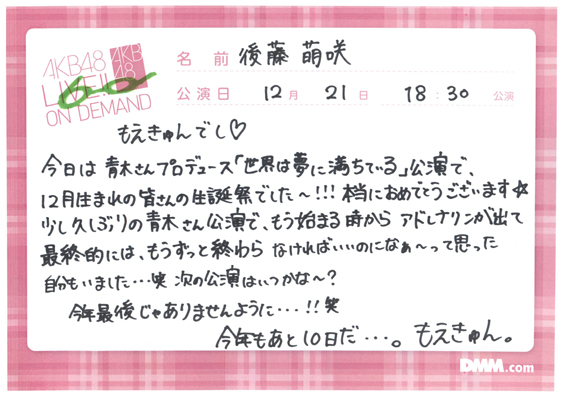 AKB48
LIVE!!
ON DEMAND
AKB
48
名前 後藤 萌咲
公演日 12月 21日 18:30 公演
もえきゅんでし♡
今日は 青木さんプロデュース「世界は夢に満ちている」公演で、
12月生まれの皆さんの生誕祭でした〜!!! 本当におめでとうございます☆
少し久しぶりの青木さん公演で、もう始まる時から アドレナリンが出て
最終的には、もうずっと終わら なければいいのになぁ〜って思った
自分もいました…笑 次の公演はいつかな〜?
今年最後じゃありませんように…!!笑
今年もあと10日だ…。 もえきゅん。
DMM.com